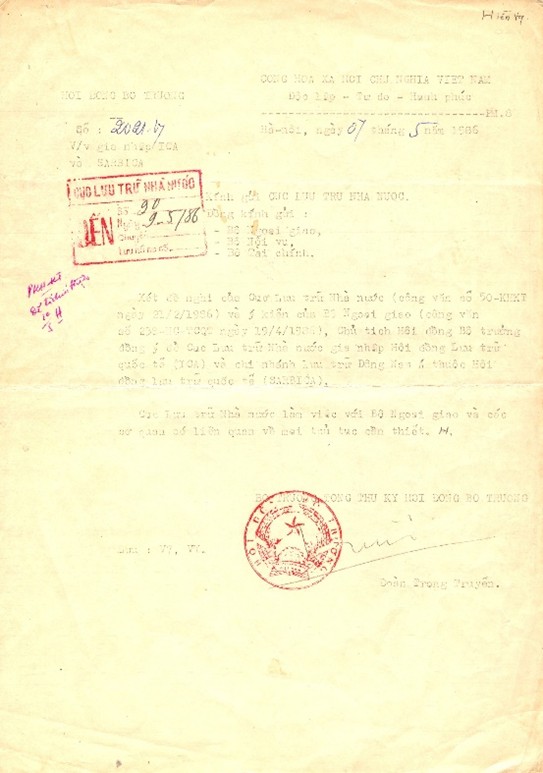 Hiền Vy
CONG HOA XA HOI CHU NGHIA VIET NAM
HOI DONG BO TRUONG
Độc lập - Tự do - Hạnh phúc
Số : 2021-V7
Hà-nội, ngày 07 tháng 5 năm 1986
V/v gia nhập/ICA
và SARBICA
CỤC LƯU TRỮ NHÀ NƯỚC
ĐẾN
Số 90
Ngày 9-5/86
Chuyển
Lưu hồ sơ số
Kính gửi CUC LUU TRU NHA NUOC.
Đồng kính gửi :
- Bộ Ngoại giao,
- Bộ Nội vụ,
- Bộ Tài chính.
Xét đề nghị của Cục Lưu trữ Nhà nước (công văn số 50-KHKT
ngày 21/2/1986) và ý kiến của Bộ Ngoại giao (công văn
ngày 19/4/1986), Chủ tịch Hội đồng Bộ trưởng
đồng ý để Cục Lưu trữ Nhà nước gia nhập Hội đồng Lưu trữ
quốc tế (ICA) và chi nhánh Lưu trữ Đông Nam Á thuộc Hội
đồng lưu trữ quốc tế (SARBICA).
Cục Lưu trữ Nhà nước làm việc với Bộ Ngoại giao và các
cơ quan có liên quan về mọi thủ tục cần thiết.
BO TRUONG TONG THU KY HOI DONG BO TRUONG
HỘI ĐỒNG BỘ TRƯỞNG
Lưu : VP, VV.
Đoàn Trọng Truyến.